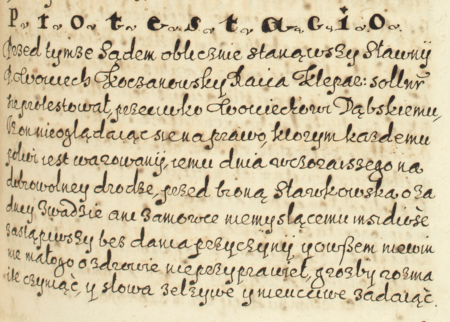 P. r. o. t. e. s. t. a. c. i. o.
Przed tymże Sądem oblicznie stanąwszy Sławnij
Woyciech Koczanowsky Raica Klepar: sollnr
że protestował przeciwko Woyciechowi Dąbskiemu,
iż on nieoglądaiąc się na prawo, ktorym każdemu
iest warowanÿ, iemu dnia wczoraiszego na
dobrowolney drodze przed broną Sławkowską o ża
dney zwadzie ani zamowce niemyslącemu insidiose
zastąpiwszy bes dania przyczynÿ y owszem niewin
nie małego o zdrowie nieprzyprawieł, grozby rozma
ite czyniąc, y słowa zelżywe y nieucciwe zadaiąc.